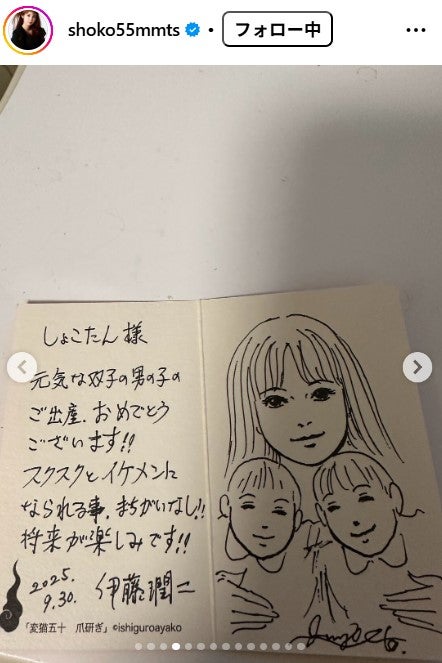 shoko55mmts • フォロー中 •••
しょこたん様
元気な双子の男の子の
ご出産、おめでとう
ございます!!
スクスクとイケメンに
なられる事、まちがいなし!!
将来が楽しみです!!
2025.
9.30. 伊藤潤二
「変猫五十 爪研ぎ」©ishiguroayako